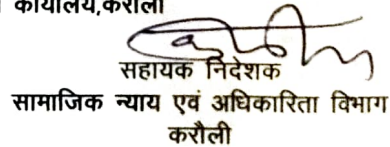 कार्यालय,करौली
सहायक निदेशक
सामाजिक न्याय एवं अधिकारिता विभाग
करौली